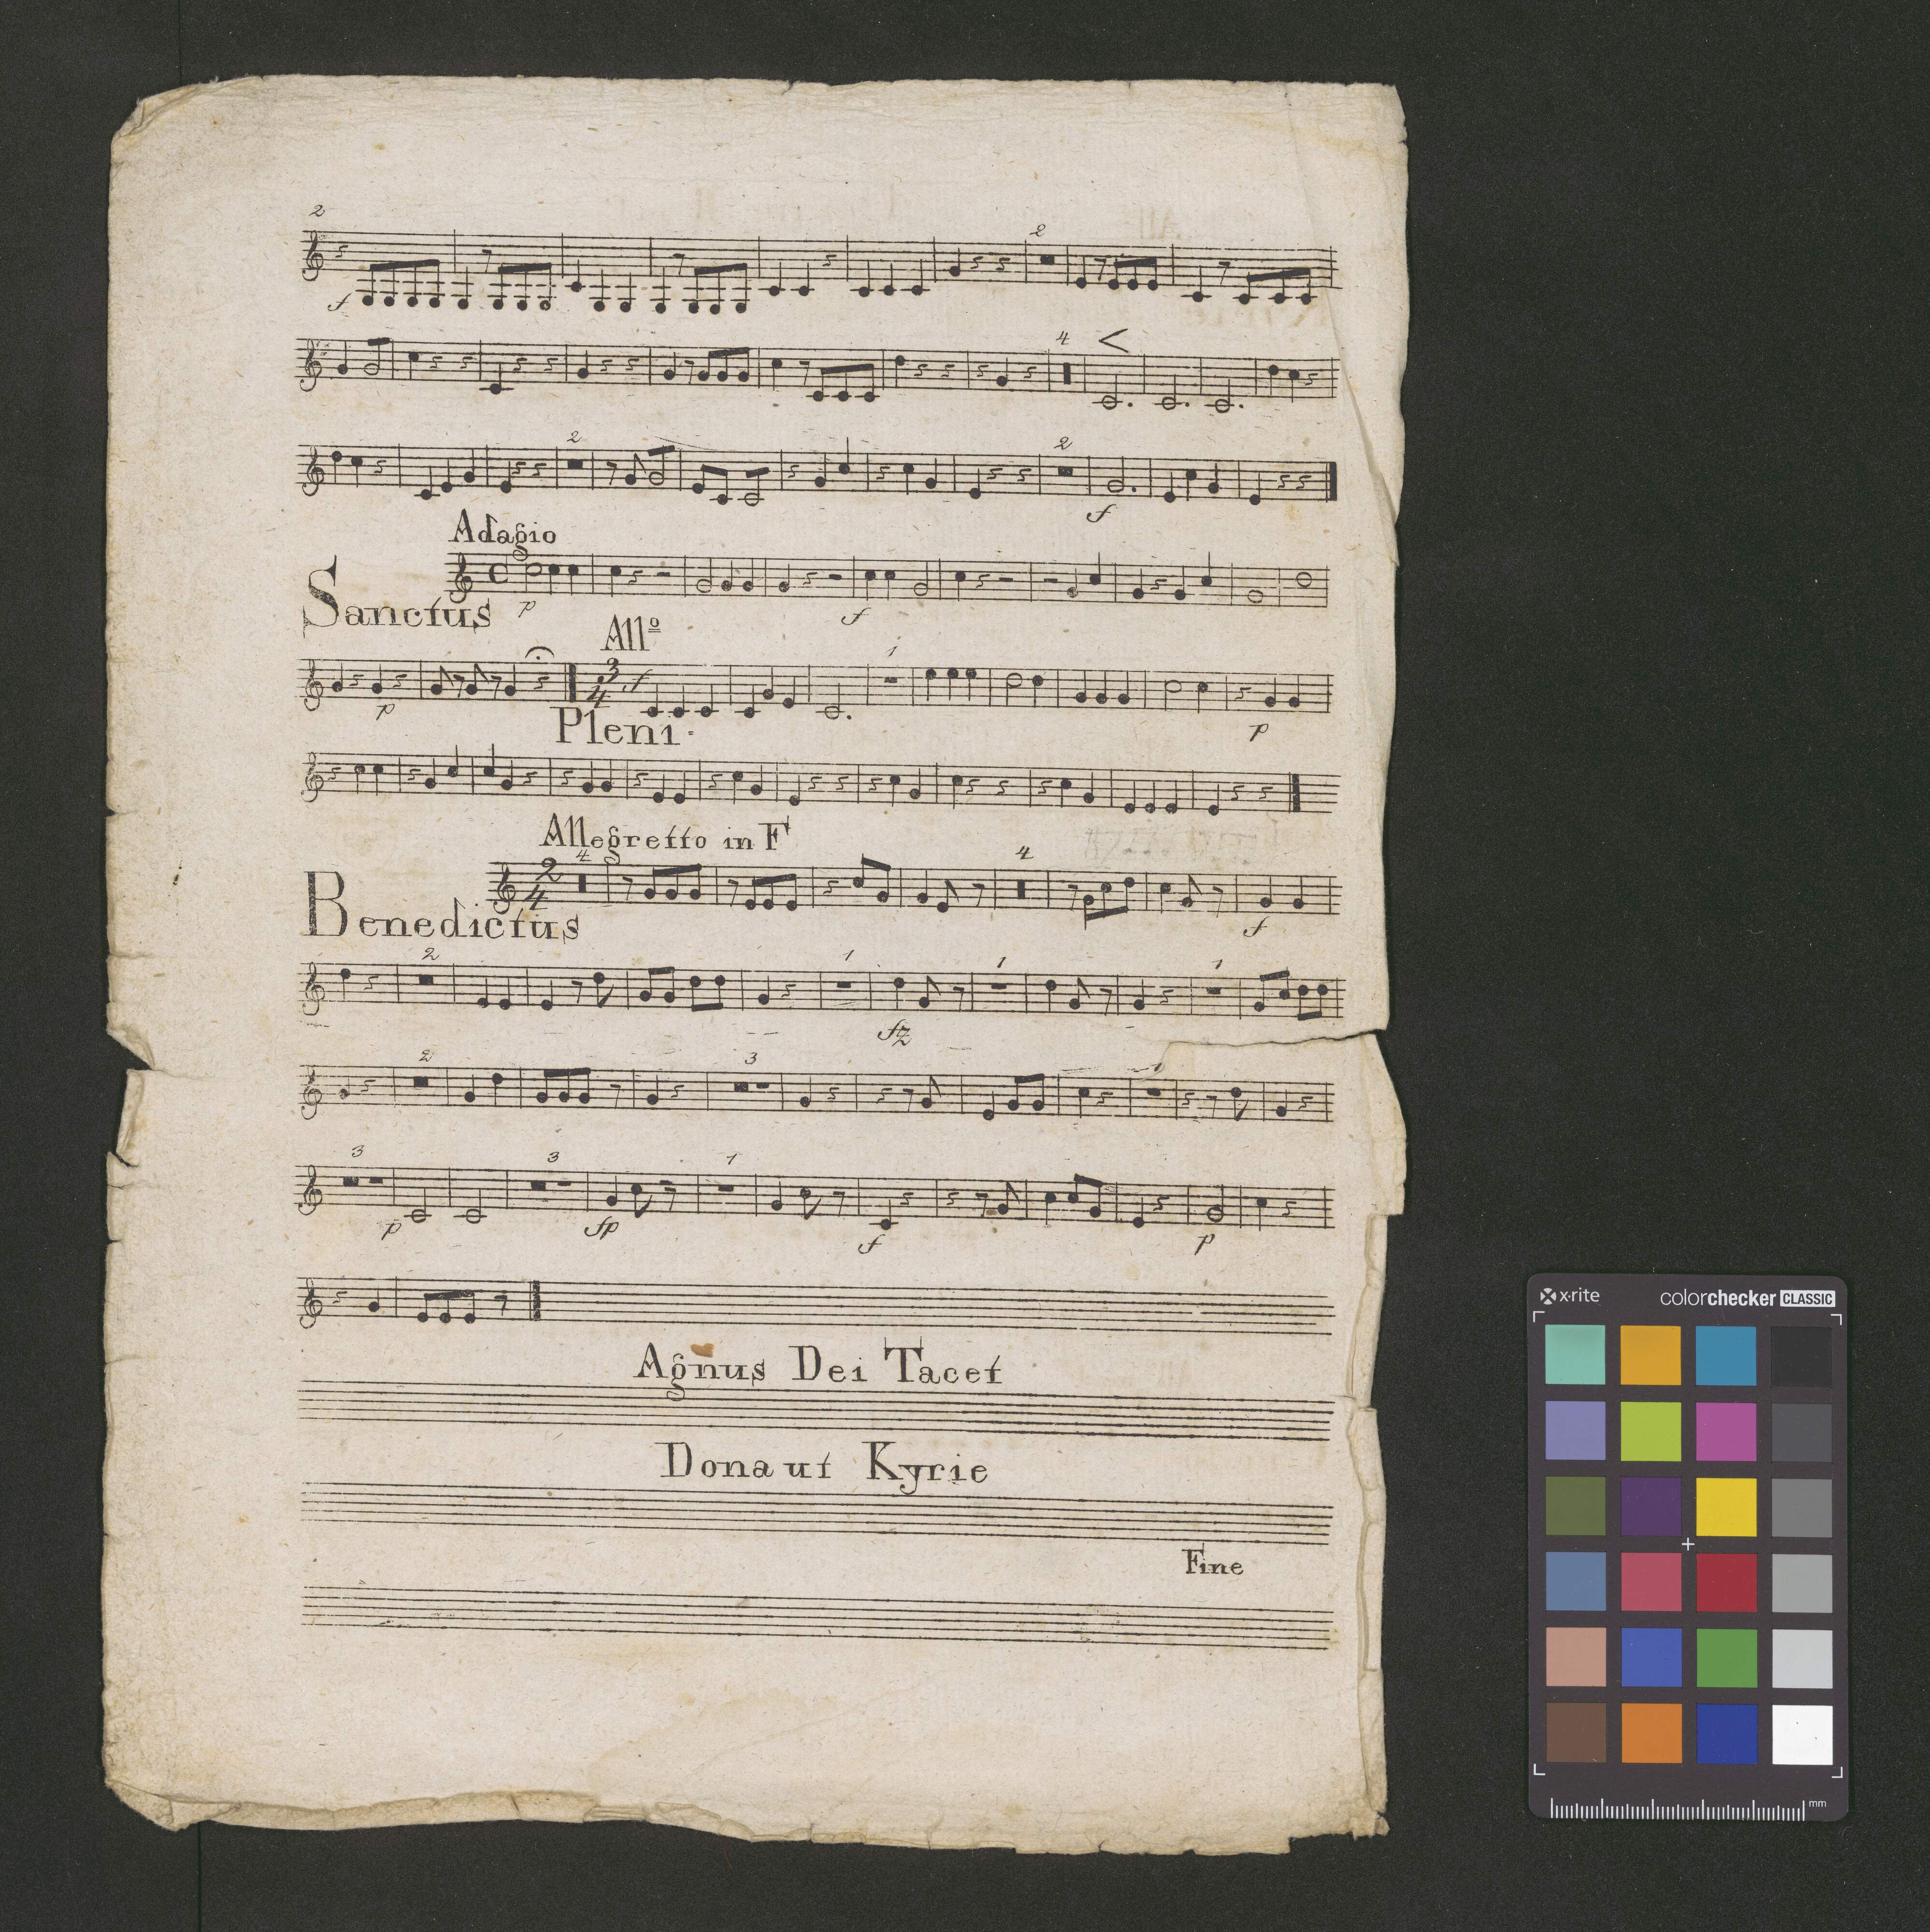 2
f
2
4
2
2
f
Adagio
Sanctus
p
f
Allº
1
3
4
f
p
p
Pleni.
Allegretto in F
4
4
2
4
Benedictus
f
2
1
1
1
fz
2
3
1
3
3
1
p
fp
f
p
Agnus Dei Tacet
Dona ut Kyrie
Fine
x-rite
colorchecker CLASSIC
mm